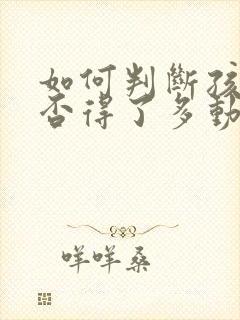 如何判斷孩
否得了多動
咩咩桑